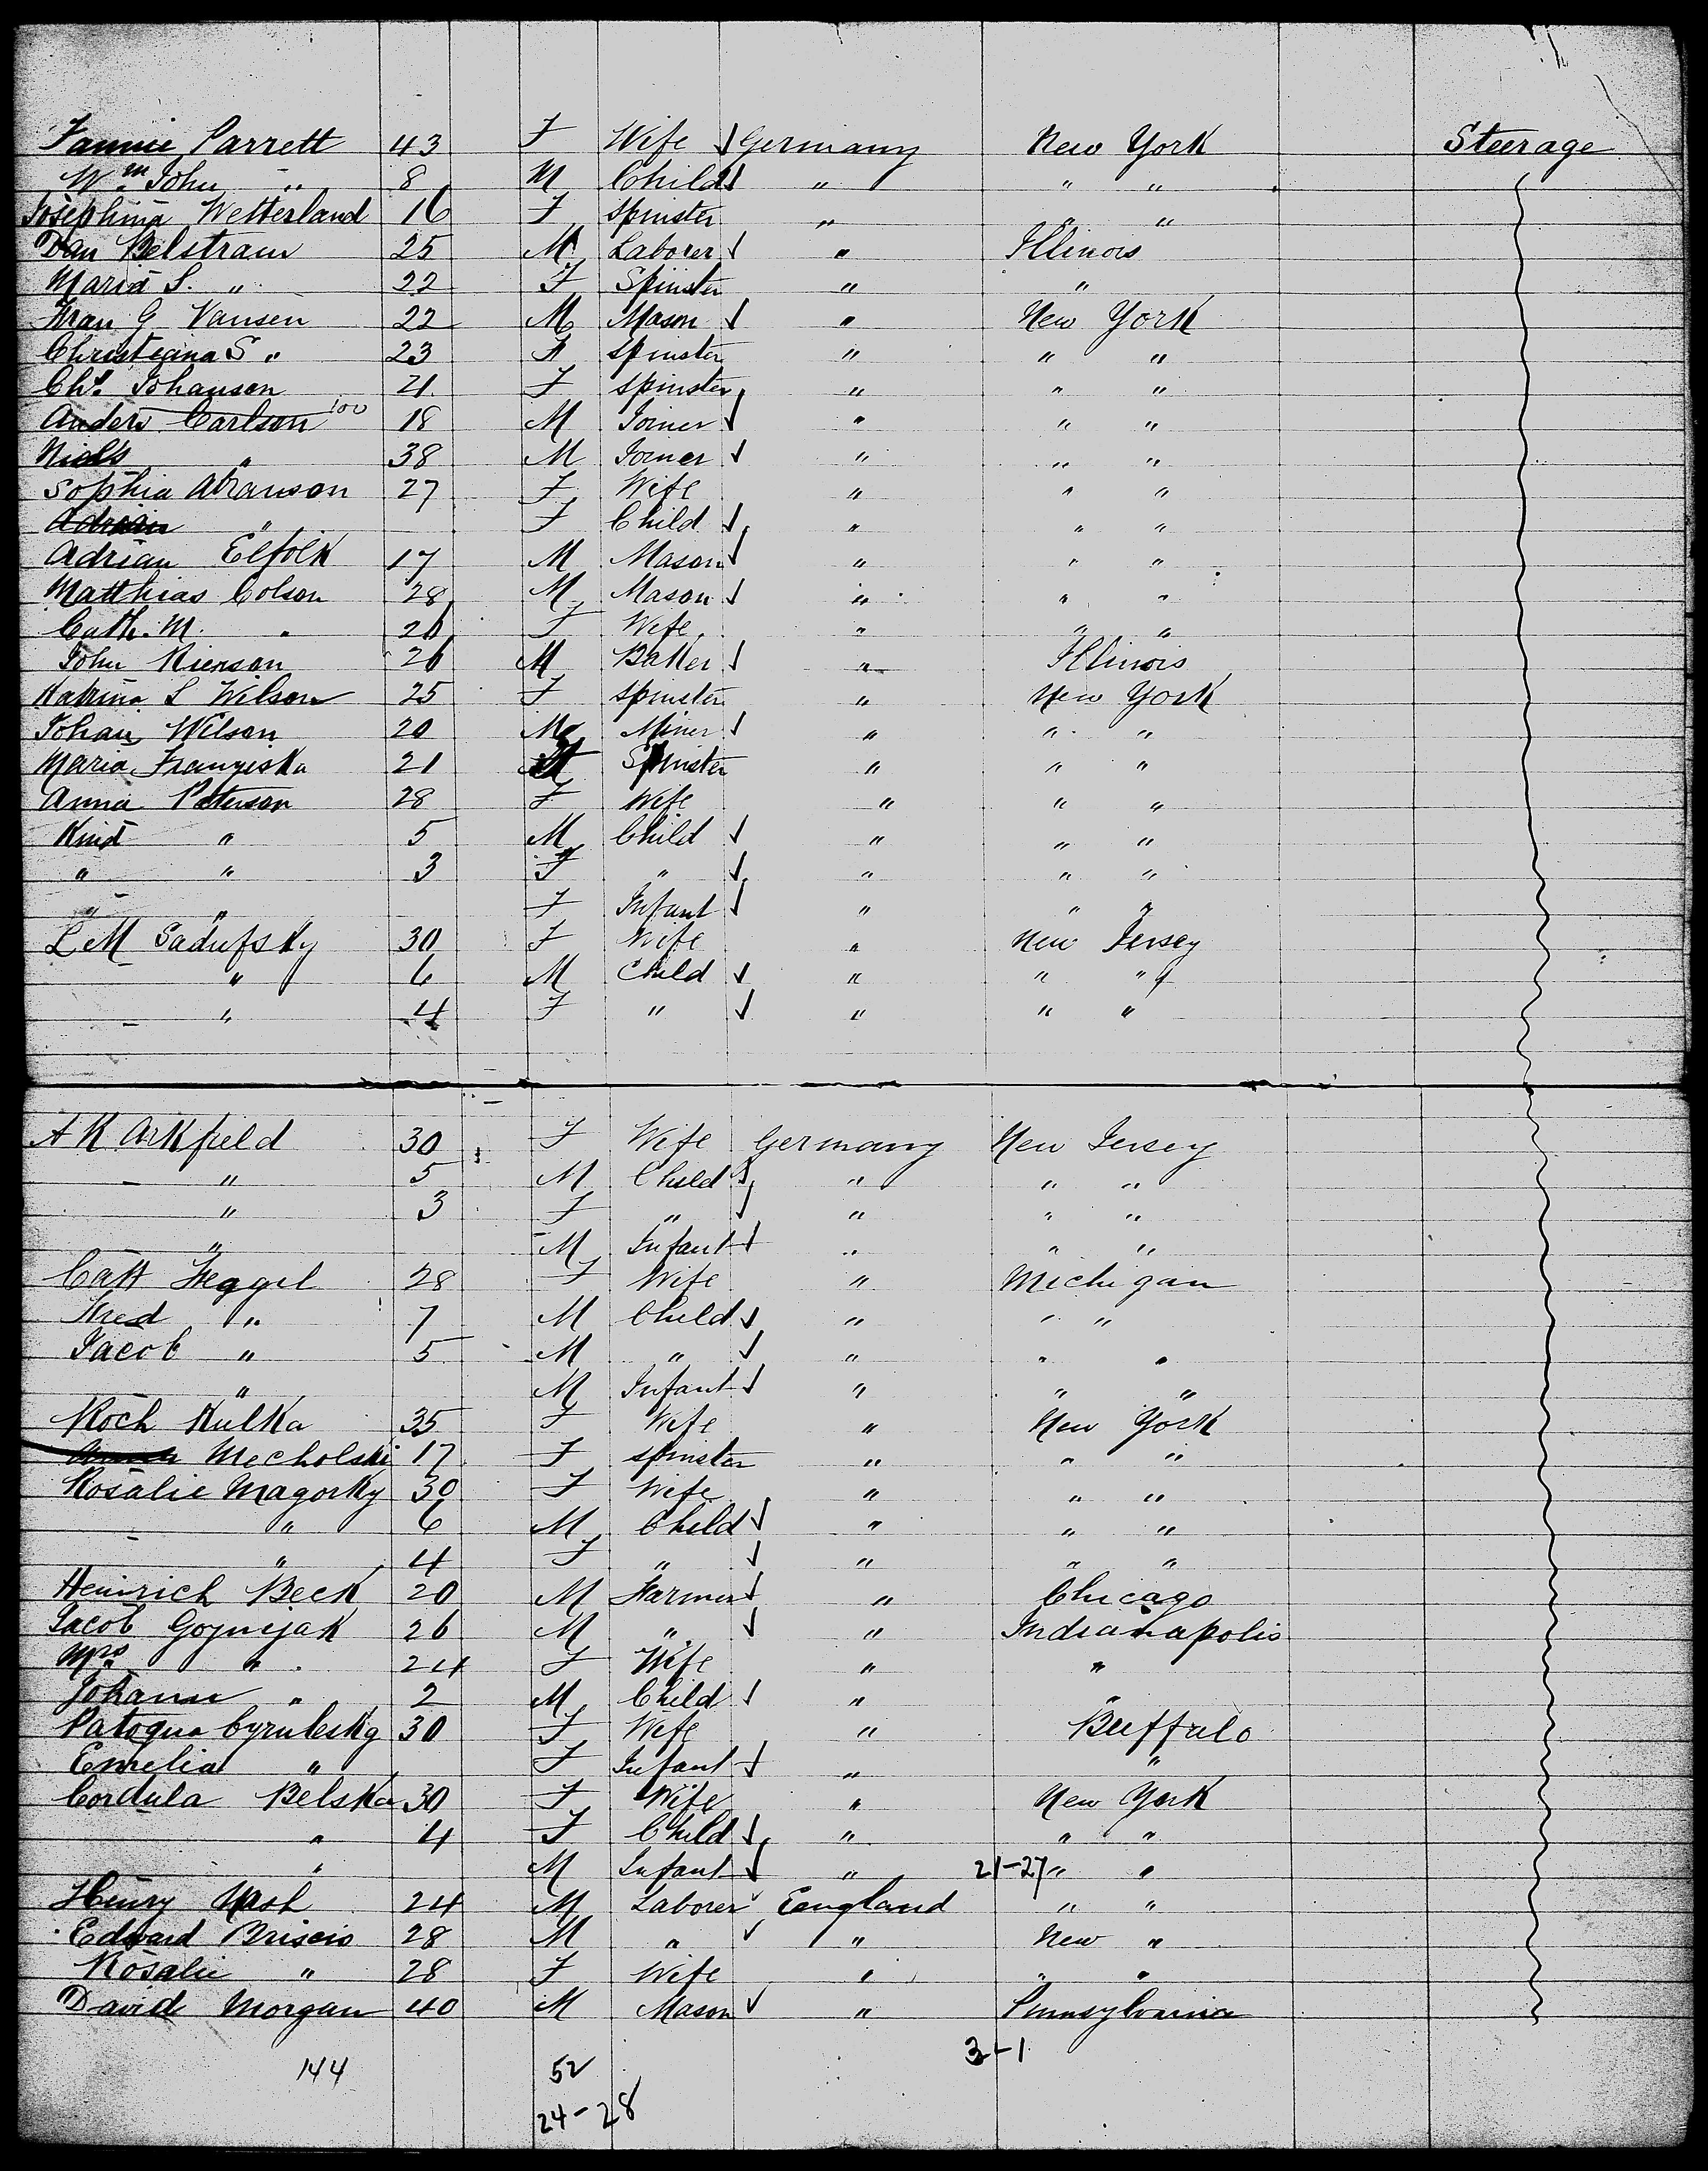 Fannie Parrett 43 F Wife ✓ Germany New York Steerage
Wm John " 8 M Child ✓ " " "
Josephina Wetterland 16 F Spinster " " "
Dan Belstram 25 M Laborer ✓ " Illinois
Maria S. " 22 F Spinster " "
Fran G Vansen 22 M Mason ✓ " New York
Christiana S " 23 F Spinster " " "
Chs. Johanson 21 F Spinster " " "
Anders Carlson 100 18 M Joiner ✓ " " "
Niels " 38 M Joiner ✓ " " "
Sophia Abranson 27 F Wife " " "
Adrian " F Child ✓ " " "
Adrian Elfolk 17 M Mason ✓ " " "
Matthias Colson 28 M Mason ✓ " " "
Cath. M. " 26 F Wife " " "
John Rierson 26 M Baker ✓ " Illinois
Katrina S Wilson 25 F Spinster " New York
Johan Wilson 20 M Miner ✓ " " "
Maria Franziska 21 Spinster " " "
Anna Peterson 28 F Wife " " "
Kind " 5 M Child ✓ " " "
" " 3 F " ✓ " " "
" " F Infant ✓ " " "
L M Sadufsky 30 F Wife " New Jersey
" 6 M Child ✓ " " "
" 4 F " ✓ " " "
A K Arkfield 30 F Wife Germany New Jersey
" 5 M Child ✓ " " "
" 3 F " ✓ " " "
" M Infant ✓ " " "
Cath Heggel 28 F Wife " Michigan
Fred " 7 M Child ✓ " " "
Jacob " 5 M " ✓ " " "
" M Infant ✓ " " "
Roch Kulka 35 F Wife " New York
Mecholski 17 F Spinster " " "
Rosalie Magorky 30 F Wife " " "
" 6 M Child ✓ " " "
" 4 F " ✓ " " "
Heinrich Beck 20 M Farmer ✓ " Chicago
Jacob Gojnijak 26 M " ✓ " Indianapolis
Mrs " 24 F Wife " "
Johann " 2 M Child ✓ " "
Patoqua Cyruleskg 30 F Wife " Buffalo
Emelia " F Infant ✓ " "
Cordula Belska 30 F Wife " New York
" 4 F Child ✓ " " "
" M Infant ✓ " 21-27 " "
Henry Nash 24 M Laborer ✓ England " "
Edward Briscis 28 M " ✓ " New "
Rosalie " 28 F Wife " " "
David Morgan 40 M Mason ✓ " Pennsylvania
3-1
144 52
24-28